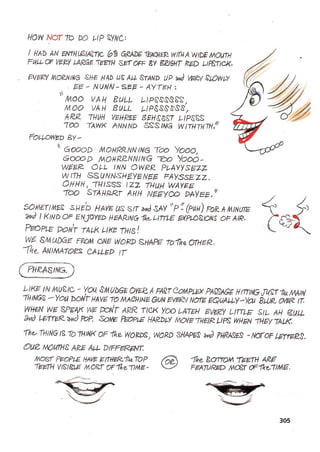 HOW NOT TO DO LIP SYNC:
I HAD AN ENTHUSIASTIC 6th GRADE TEACHER WITH A WIDE MOUTH
FULL OF VERY LARGE TEETH SET OFF BY BRIGHT RED LIPSTICK.
EVERY MORNING SHE HAD US ALL STAND UP and VERY SLOWLY
EE - NUNN - SEE - AYTEH :
"MOO VAH BULL LIPSSSSSS,
MOO VAH BULL LIPSSSSSS,
ARR THUH VEHREE BEHSSST LIPSSS
TOO TAWK ANNND SSSING WITHTHTH."
FOLLOWED BY -
"GOOOD MOHRRNNING TOO YOOO,
GOOOD MOHRRNNING TOO YOOO -
WEER OLL INN OWRR PLAYYSEZZ
WITH SSUNNSHEYENEE FAYSSEZZ.
OHHH, THISSS IZZ THUH WAYEE
TOO STAHRRT AHH NEEYOO DAYEE."
SOMETIMES SHE'D HAVE US SIT and SAY "P" (PUH) FOR A MINUTE
and I KIND OF ENJOYED HEARING THE LITTLE EXPLOSIONS OF AIR.
PEOPLE DON'T TALK LIKE THIS!
WE SMUDGE FROM ONE WORD SHAPE TO THE OTHER.
THE ANIMATORS CALLED IT
PHRASING.
LIKE IN MUSIC - YOU SMUDGE OVER A FAST COMPLEX PASSAGE HITTING JUST THE MAIN
THINGS - YOU DON'T HAVE TO MACHINE GUN EVERY NOTE EQUALLY - YOU BLUR OVER IT.
WHEN WE SPEAK WE DON'T ARR TICK YOO LATEH EVERY LITTLE SIL AH BULL
and LETTER and POP. SOME PEOPLE HARDLY MOVE THEIR LIPS WHEN THEY TALK.
THE THING IS TO THINK OF THE WORDS, WORD SHAPES and PHRASES - NOT OF LETTERS.
OUR MOUTHS ARE ALL DIFFERENT.
MOST PEOPLE HAVE EITHER THE TOP
TEETH VISIBLE MOST OF THE TIME -
OR
THE BOTTOM TEETH ARE
FEATURED MOST OF THE TIME.
305